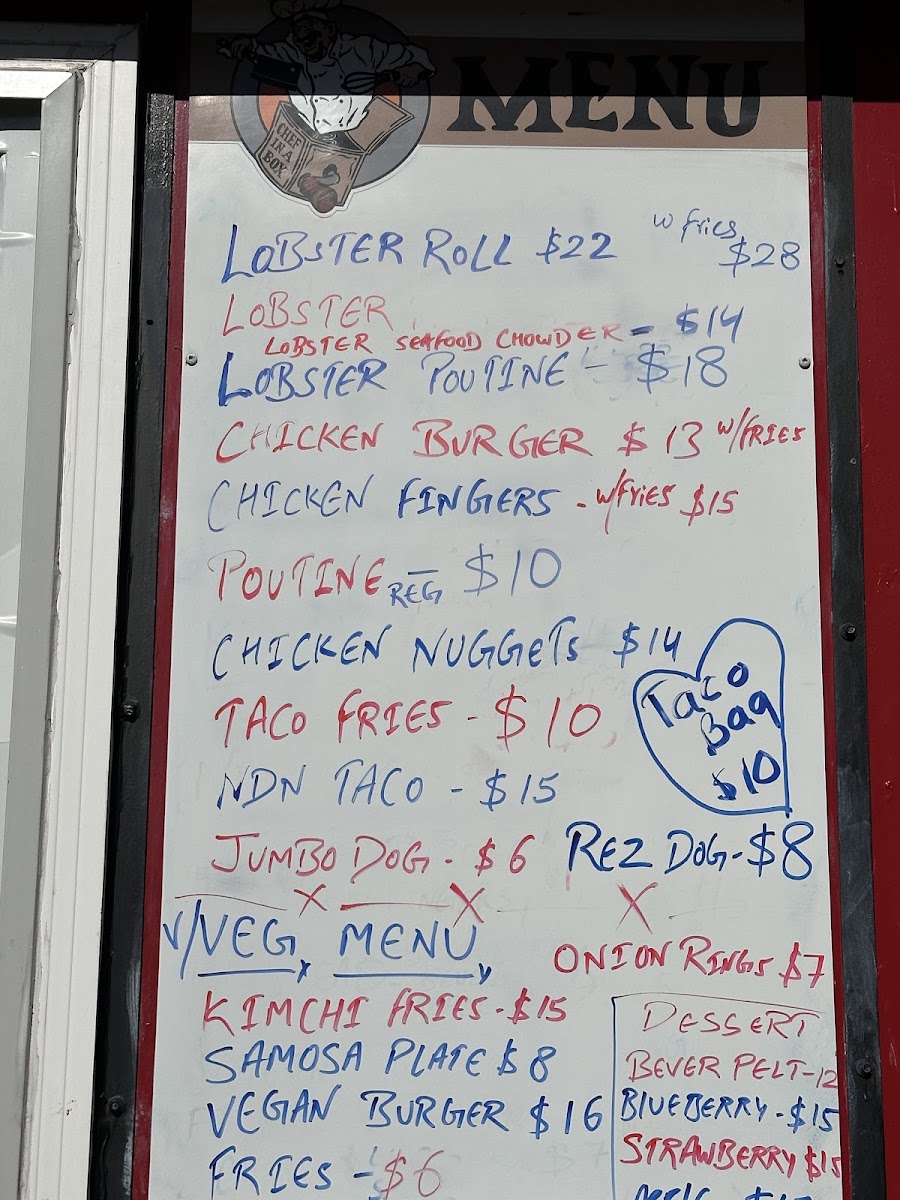 MENU
CHEF
IN A
BOX
LOBSTER ROLL $22 w fries $28
LOBSTER
LOBSTER SEAFOOD CHOWDER - $14
LOBSTER POUTINE - $18
CHICKEN BURGER $13 W/FRIES
CHICKEN FINGERS - w/Fries $15
POUTINE REG - $10
CHICKEN NUGGETS $14
TACO FRIES - $10
Taco
Bag
$10
NDN TACO - $15
JUMBO DOG - $6 REZ DOG - $8
V/VEG MENU
ONION RINGS $7
KIMCHI FRIES - $15
SAMOSA PLATE $8
VEGAN BURGER $16
FRIES - $6
DESSERT
BEVER PELT - 12
BLUEBERRY - $15
STRAWBERRY $15